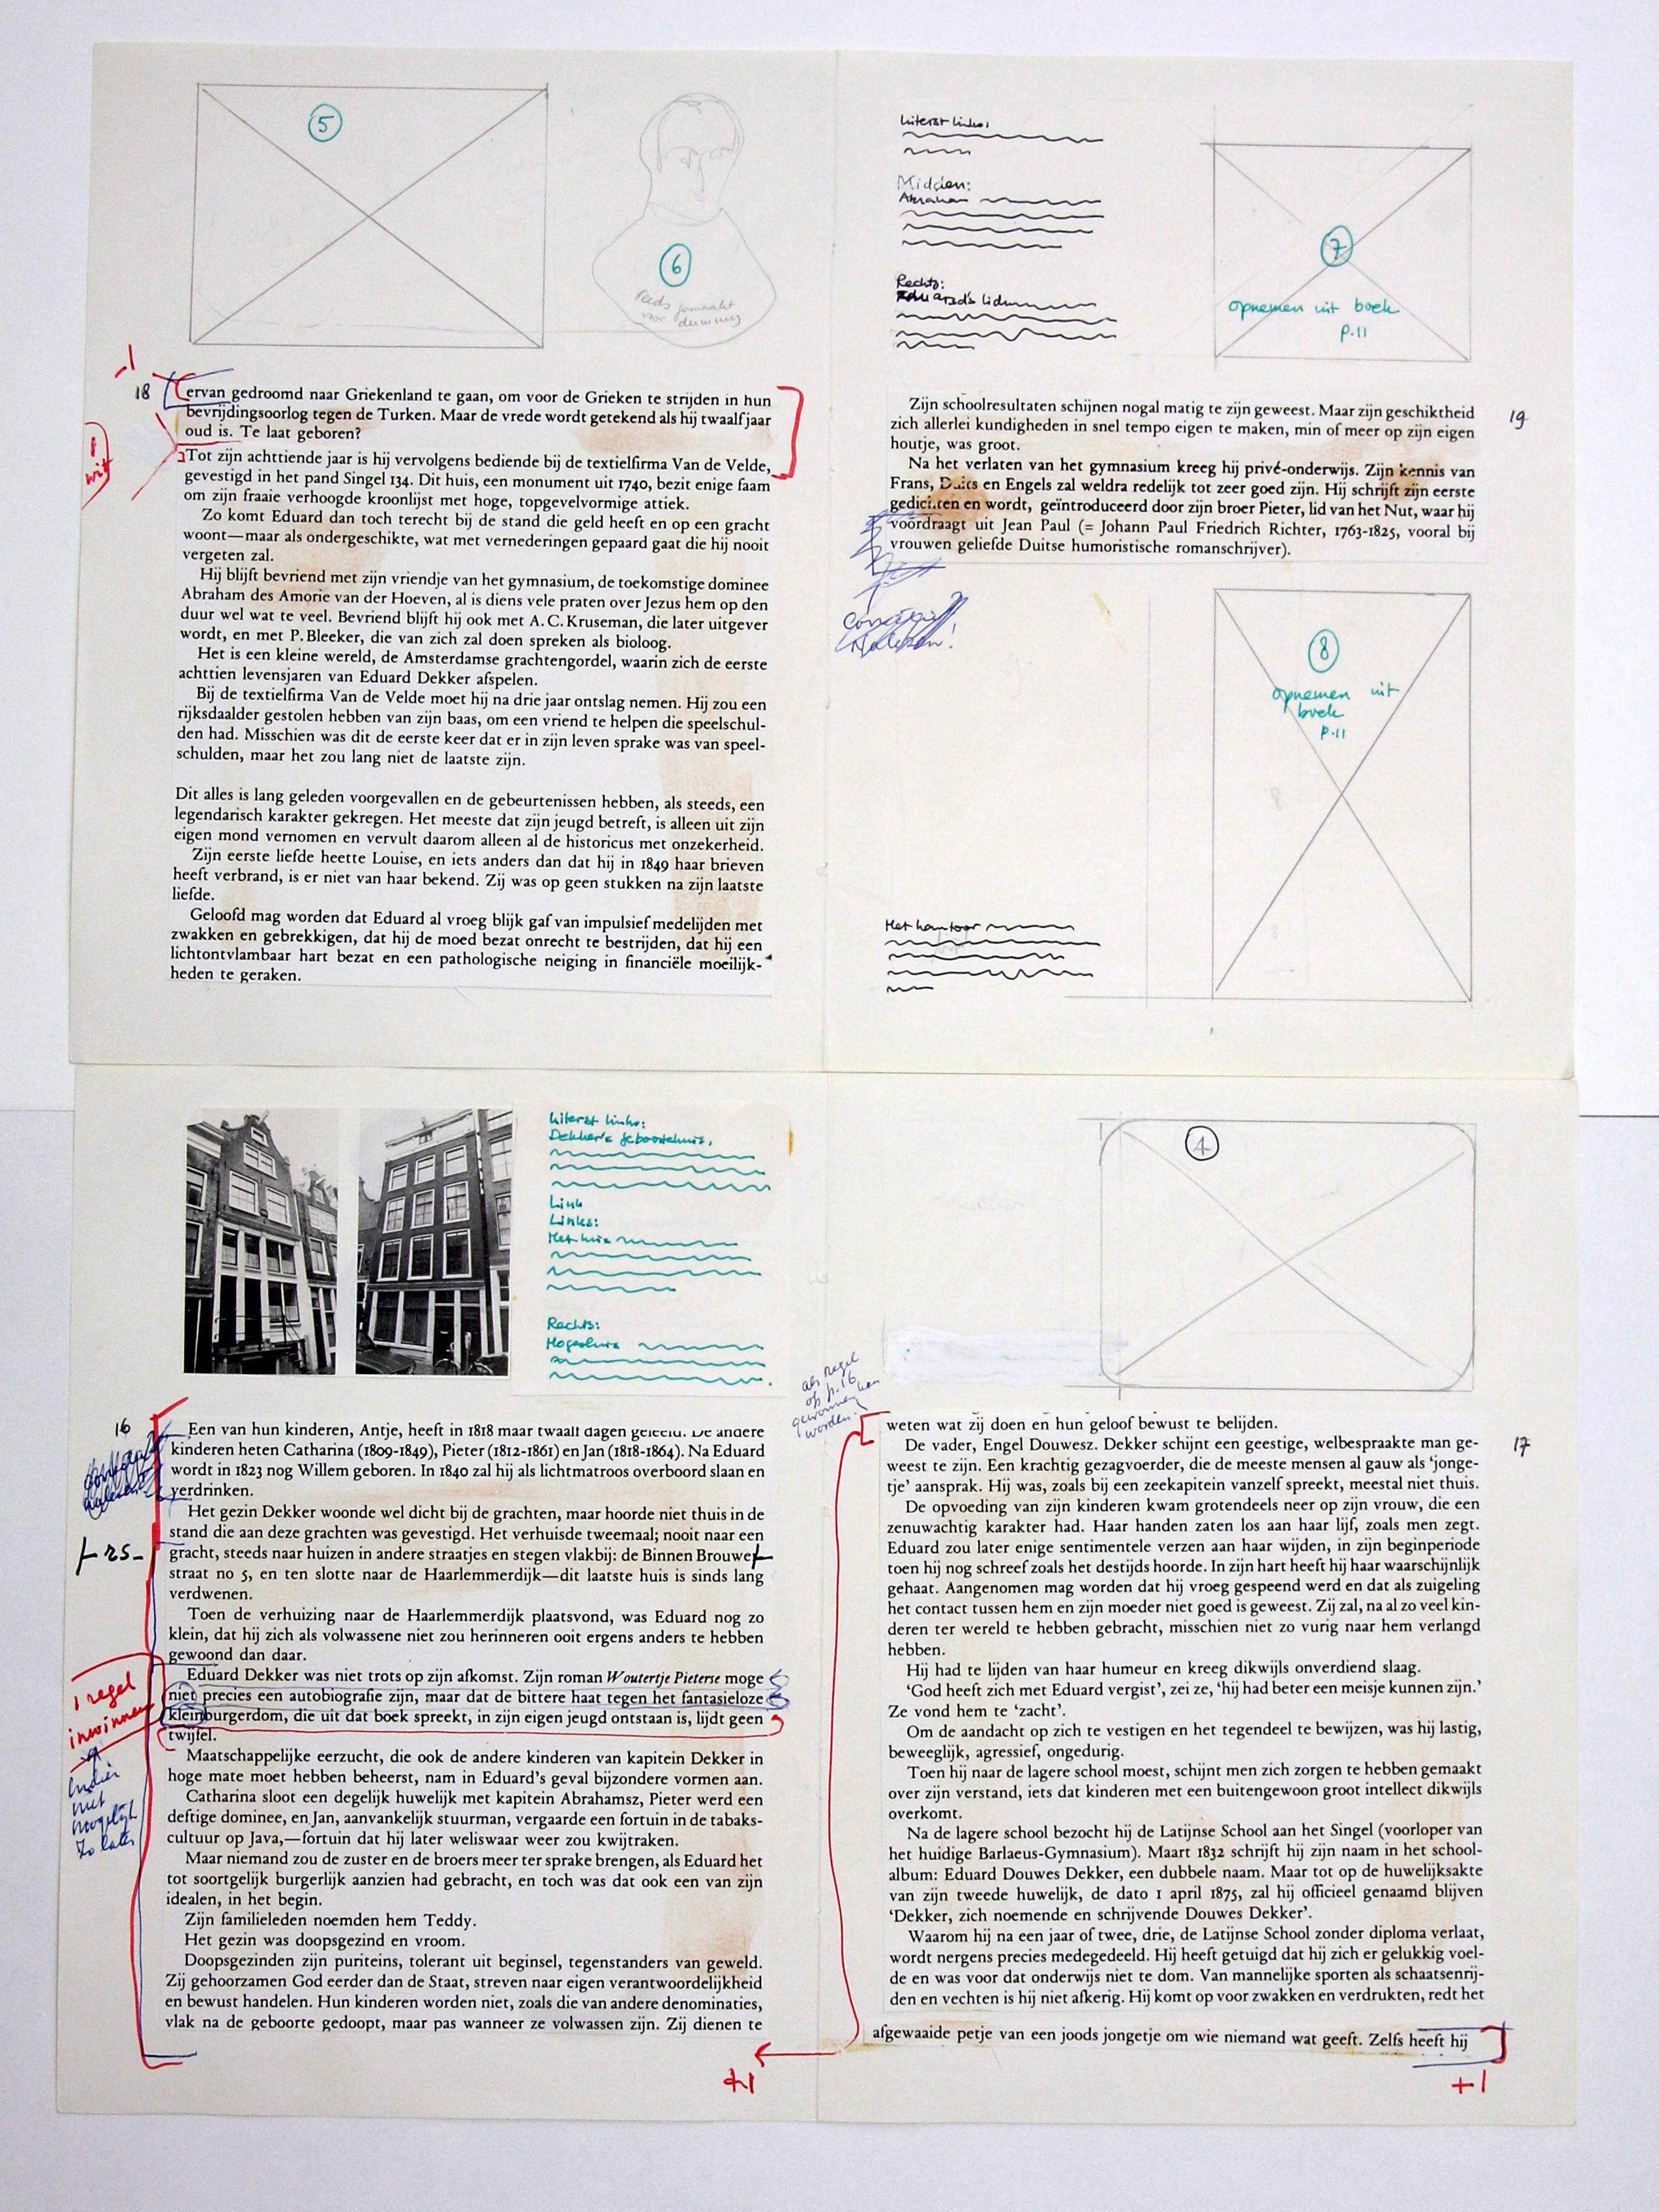 5
6
reeds gemaakt
voor dummy
-1
18
1
wit
ervan gedroomd naar Griekenland te gaan, om voor de Grieken te strijden in hun
bevrijdingsoorlog tegen de Turken. Maar de vrede wordt getekend als hij twaalf jaar
oud is. Te laat geboren?
Tot zijn achttiende jaar is hij vervolgens bediende bij de textielfirma Van de Velde,
gevestigd in het pand Singel 134. Dit huis, een monument uit 1740, bezit enige faam
om zijn fraaie verhoogde kroonlijst met hoge, topgevelvormige attiek.
Zo komt Eduard dan toch terecht bij de stand die geld heeft en op een gracht
woont—maar als ondergeschikte, wat met vernederingen gepaard gaat die hij nooit
vergeten zal.
Hij blijft bevriend met zijn vriendje van het gymnasium, de toekomstige dominee
Abraham des Amorie van der Hoeven, al is diens vele praten over Jezus hem op den
duur wel wat te veel. Bevriend blijft hij ook met A.C. Kruseman, die later uitgever
wordt, en met P. Bleeker, die van zich zal doen spreken als bioloog.
Het is een kleine wereld, de Amsterdamse grachtengordel, waarin zich de eerste
achttien levensjaren van Eduard Dekker afspelen.
Bij de textielfirma Van de Velde moet hij na drie jaar ontslag nemen. Hij zou een
rijksdaalder gestolen hebben van zijn baas, om een vriend te helpen die speelschul-
den had. Misschien was dit de eerste keer dat er in zijn leven sprake was van speel-
schulden, maar het zou lang niet de laatste zijn.
Dit alles is lang geleden voorgevallen en de gebeurtenissen hebben, als steeds, een
legendarisch karakter gekregen. Het meeste dat zijn jeugd betreft, is alleen uit zijn
eigen mond vernomen en vervult daarom alleen al de historicus met onzekerheid.
Zijn eerste liefde heette Louise, en iets anders dan dat hij in 1849 haar brieven
heeft verbrand, is er niet van haar bekend. Zij was op geen stukken na zijn laatste
liefde.
Geloofd mag worden dat Eduard al vroeg blijk gaf van impulsief medelijden met
zwakken en gebrekkigen, dat hij de moed bezat onrecht te bestrijden, dat hij een
lichtontvlambaar hart bezat en een pathologische neiging in financiële moeilijk-
heden te geraken.
Uiterst links:
Midden:
Abraham
Rechts:
Eduard's lidm
7
opnemen uit boek
p.11
19
Zijn schoolresultaten schijnen nogal matig te zijn geweest. Maar zijn geschiktheid
zich allerlei kundigheden in snel tempo eigen te maken, min of meer op zijn eigen
houtje, was groot.
Na het verlaten van het gymnasium kreeg hij privé-onderwijs. Zijn kennis van
Frans, Duits en Engels zal weldra redelijk tot zeer goed zijn. Hij schrijft zijn eerste
gedichten en wordt, geïntroduceerd door zijn broer Pieter, lid van het Nut, waar hij
voordraagt uit Jean Paul (= Johann Paul Friedrich Richter, 1763-1825, vooral bij
vrouwen geliefde Duitse humoristische romanschrijver).
8
opnemen uit
boek
p.11
Het kantoor
Uiterst links:
Dekker's geboortehuis,
Link
Links:
Het huis
Rechts:
Hogeshuis
16
Een van hun kinderen, Antje, heeft in 1818 maar twaalf dagen geleefd. De andere
kinderen heten Catharina (1809-1849), Pieter (1812-1861) en Jan (1818-1864). Na Eduard
wordt in 1823 nog Willem geboren. In 1840 zal hij als lichtmatroos overboord slaan en
verdrinken.
Het gezin Dekker woonde wel dicht bij de grachten, maar hoorde niet thuis in de
stand die aan deze grachten was gevestigd. Het verhuisde tweemaal; nooit naar een
gracht, steeds naar huizen in andere straatjes en stegen vlakbij: de Binnen Brouwer
straat no 5, en ten slotte naar de Haarlemmerdijk—dit laatste huis is sinds lang
verdwenen.
Toen de verhuizing naar de Haarlemmerdijk plaatsvond, was Eduard nog zo
klein, dat hij zich als volwassene niet zou herinneren ooit ergens anders te hebben
gewoond dan daar.
Eduard Dekker was niet trots op zijn afkomst. Zijn roman Woutertje Pieterse moge
niet precies een autobiografie zijn, maar dat de bittere haat tegen het fantasieloze
kleinburgerdom, die uit dat boek spreekt, in zijn eigen jeugd ontstaan is, lijdt geen
twijfel.
Maatschappelijke eerzucht, die ook de andere kinderen van kapitein Dekker in
hoge mate moet hebben beheerst, nam in Eduard's geval bijzondere vormen aan.
Catharina sloot een degelijk huwelijk met kapitein Abrahamsz, Pieter werd een
deftige dominee, en Jan, aanvankelijk stuurman, vergaarde een fortuin in de tabaks-
cultuur op Java,—fortuin dat hij later weliswaar weer zou kwijtraken.
Maar niemand zou de zuster en de broers meer ter sprake brengen, als Eduard het
tot soortgelijk burgerlijk aanzien had gebracht, en toch was dat ook een van zijn
idealen, in het begin.
Zijn familieleden noemden hem Teddy.
Het gezin was doopsgezind en vroom.
Doopsgezinden zijn puriteins, tolerant uit beginsel, tegenstanders van geweld.
Zij gehoorzamen God eerder dan de Staat, streven naar eigen verantwoordelijkheid
en bewust handelen. Hun kinderen worden niet, zoals die van andere denominaties,
vlak na de geboorte gedoopt, maar pas wanneer ze volwassen zijn. Zij dienen te
rs-
1 regel
inwinnen
indien
niet
mogelijk
zo laten
+1
4
als regel
op p.16
gewonnen kan
worden!
17
weten wat zij doen en hun geloof bewust te belijden.
De vader, Engel Douwesz. Dekker schijnt een geestige, welbespraakte man ge-
weest te zijn. Een krachtig gezagvoerder, die de meeste mensen al gauw als 'jonge-
tje' aansprak. Hij was, zoals bij een zeekapitein vanzelf spreekt, meestal niet thuis.
De opvoeding van zijn kinderen kwam grotendeels neer op zijn vrouw, die een
zenuwachtig karakter had. Haar handen zaten los aan haar lijf, zoals men zegt.
Eduard zou later enige sentimentele verzen aan haar wijden, in zijn beginperiode
toen hij nog schreef zoals het destijds hoorde. In zijn hart heeft hij haar waarschijnlijk
gehaat. Aangenomen mag worden dat hij vroeg gespeend werd en dat als zuigeling
het contact tussen hem en zijn moeder niet goed is geweest. Zij zal, na al zo veel kin-
deren ter wereld te hebben gebracht, misschien niet zo vurig naar hem verlangd
hebben.
Hij had te lijden van haar humeur en kreeg dikwijls onverdiend slaag.
'God heeft zich met Eduard vergist', zei ze, 'hij had beter een meisje kunnen zijn.'
Ze vond hem te 'zacht'.
Om de aandacht op zich te vestigen en het tegendeel te bewijzen, was hij lastig,
beweeglijk, agressief, ongedurig.
Toen hij naar de lagere school moest, schijnt men zich zorgen te hebben gemaakt
over zijn verstand, iets dat kinderen met een buitengewoon groot intellect dikwijls
overkomt.
Na de lagere school bezocht hij de Latijnse School aan het Singel (voorloper van
het huidige Barlaeus-Gymnasium). Maart 1832 schrijft hij zijn naam in het school-
album: Eduard Douwes Dekker, een dubbele naam. Maar tot op de huwelijksakte
van zijn tweede huwelijk, de dato 1 april 1875, zal hij officieel genaamd blijven
'Dekker, zich noemende en schrijvende Douwes Dekker'.
Waarom hij na een jaar of twee, drie, de Latijnse School zonder diploma verlaat,
wordt nergens precies medegedeeld. Hij heeft getuigd dat hij zich er gelukkig voel-
de en was voor dat onderwijs niet te dom. Van mannelijke sporten als schaatsenrij-
den en vechten is hij niet afkerig. Hij komt op voor zwakken en verdrukten, redt het
afgewaaide petje van een joods jongetje om wie niemand wat geeft. Zelfs heeft hij
+1